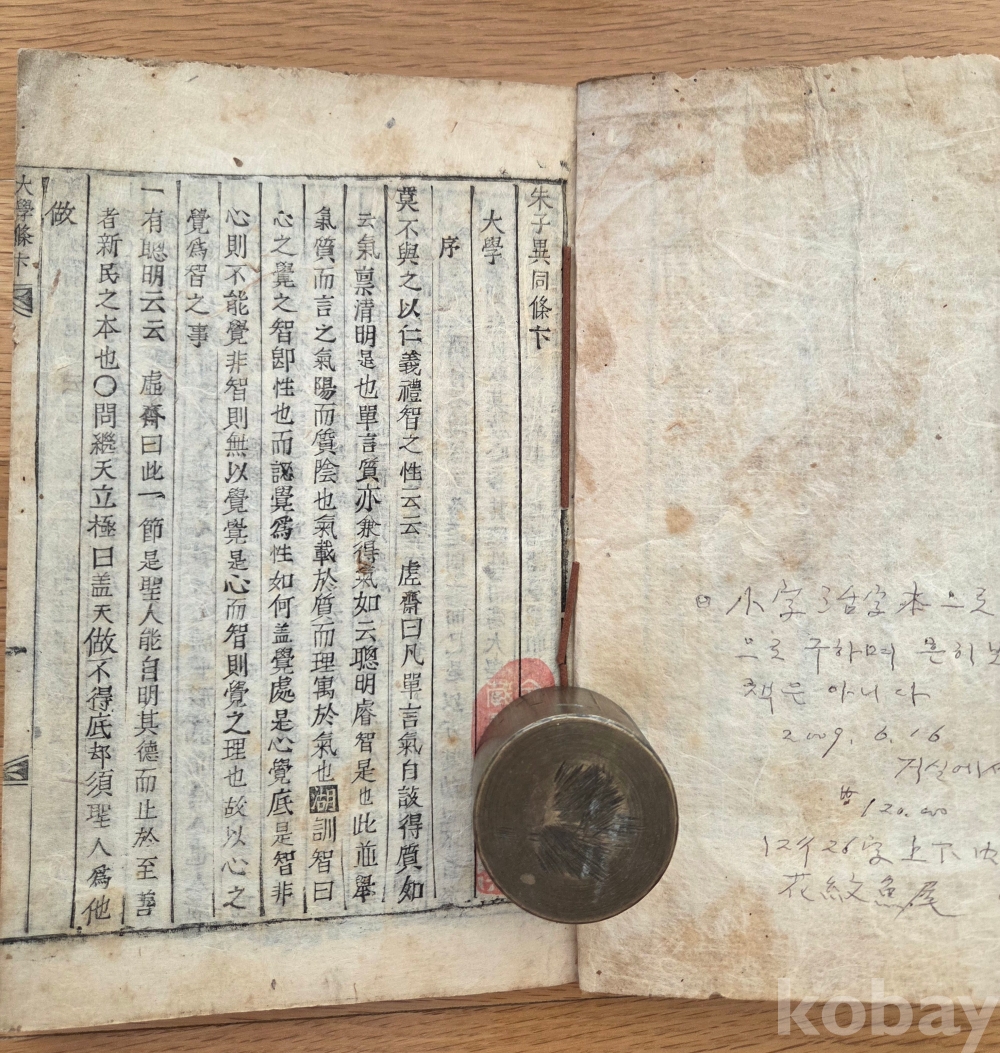 朱子異同條卞
大學
序
莫不與之以仁義禮智之性云云 虛齋曰凡單言氣自該得質如
云氣禀清明是也單言質亦兼得氣如云聰明睿智是也此並舉
氣質而言之氣陽而質陰也氣載於質而理寓於氣也湖訓智曰
心之覺之智卽性也而認覺爲性如何盖覺處是心覺底是智非
心則不能覺非智則無以覺覺是心而智則覺之理也故以心之
覺爲智之事
一有聰明云云 虛齋曰此一節是聖人能自明其德而止於至善
者新民之本也〇問繼天立極曰盖天做不得底却須聖人爲他
做
大學條卞
小字 活字本으로
으로 구하며 흔히
책은 아니다
2009. 6. 16
거실에서
120.00
12行26字 上下内
花紋魚尾
kobay